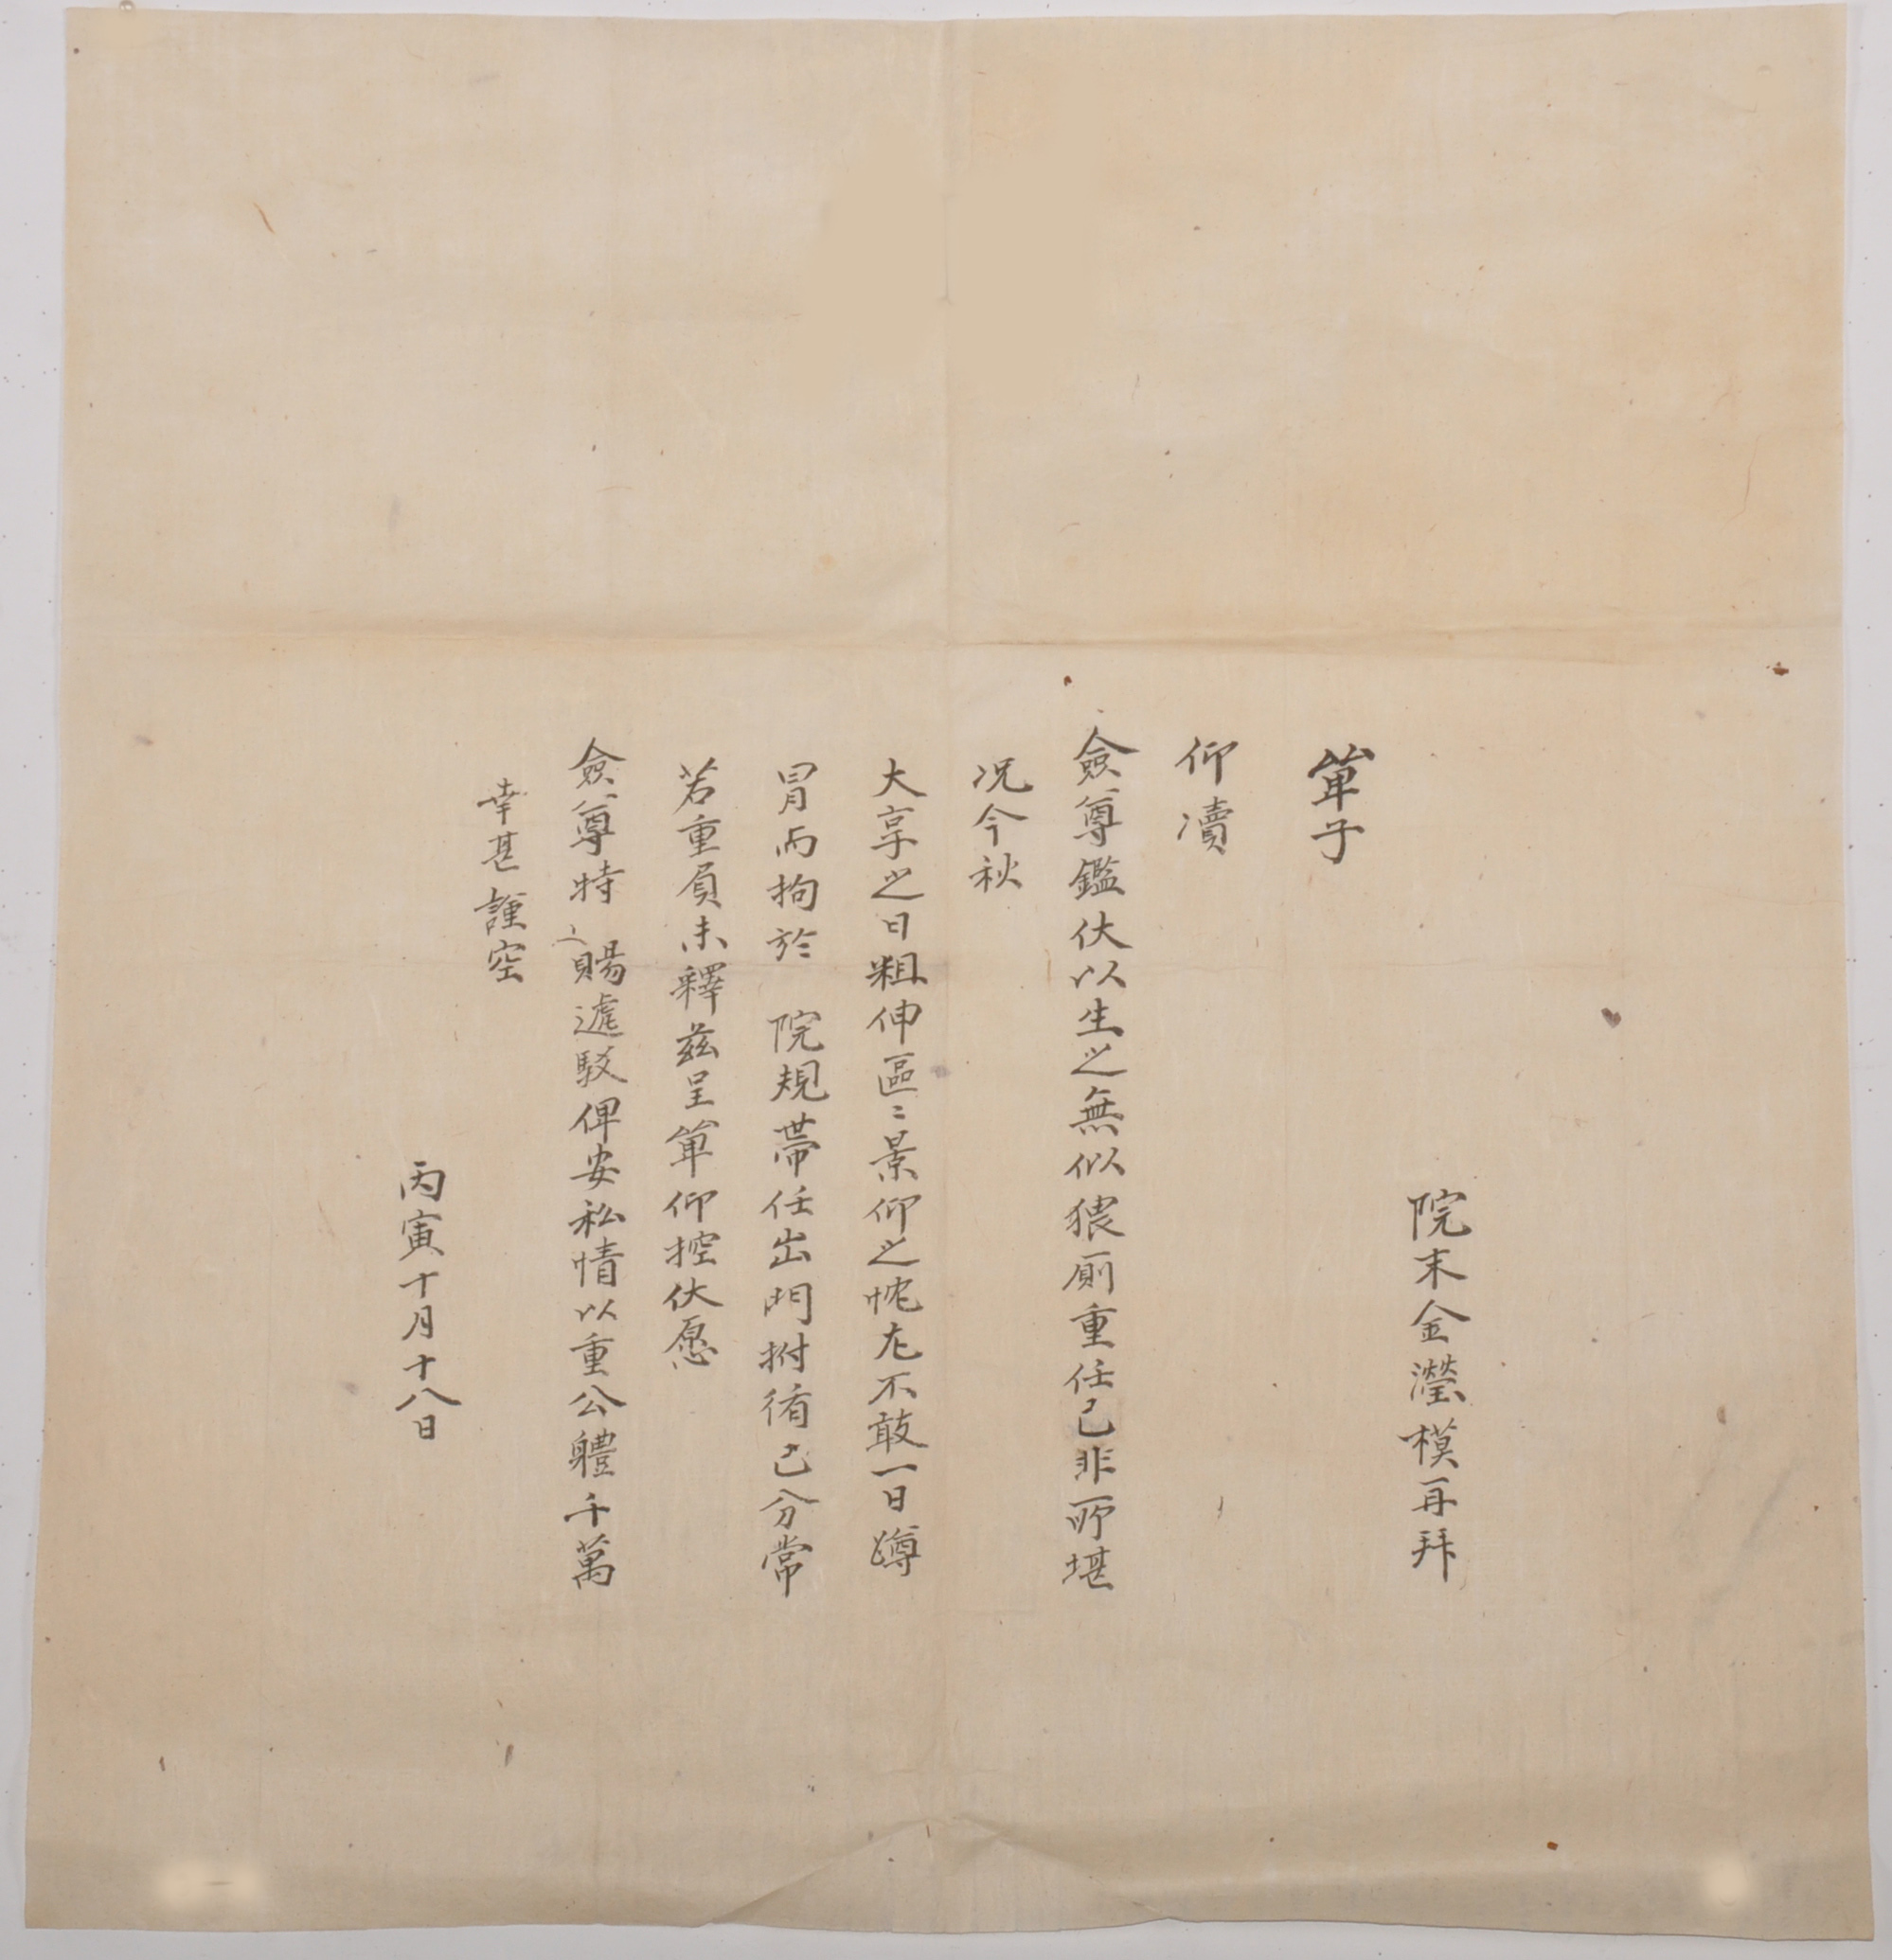 院末金瀅模再拜
單子
仰瀆
僉尊鑑伏以生之無似猥厠重任已非所堪
况今秋
大享之日粗伸區〻景仰之忱尤不敢一日蹲
冒而拘於 院規帶任出門拊循己分常
若重負未釋玆呈單仰控伏愿
僉尊特 賜遞駁俾安私情以重公軆千萬
幸甚謹空
丙寅十月十八日